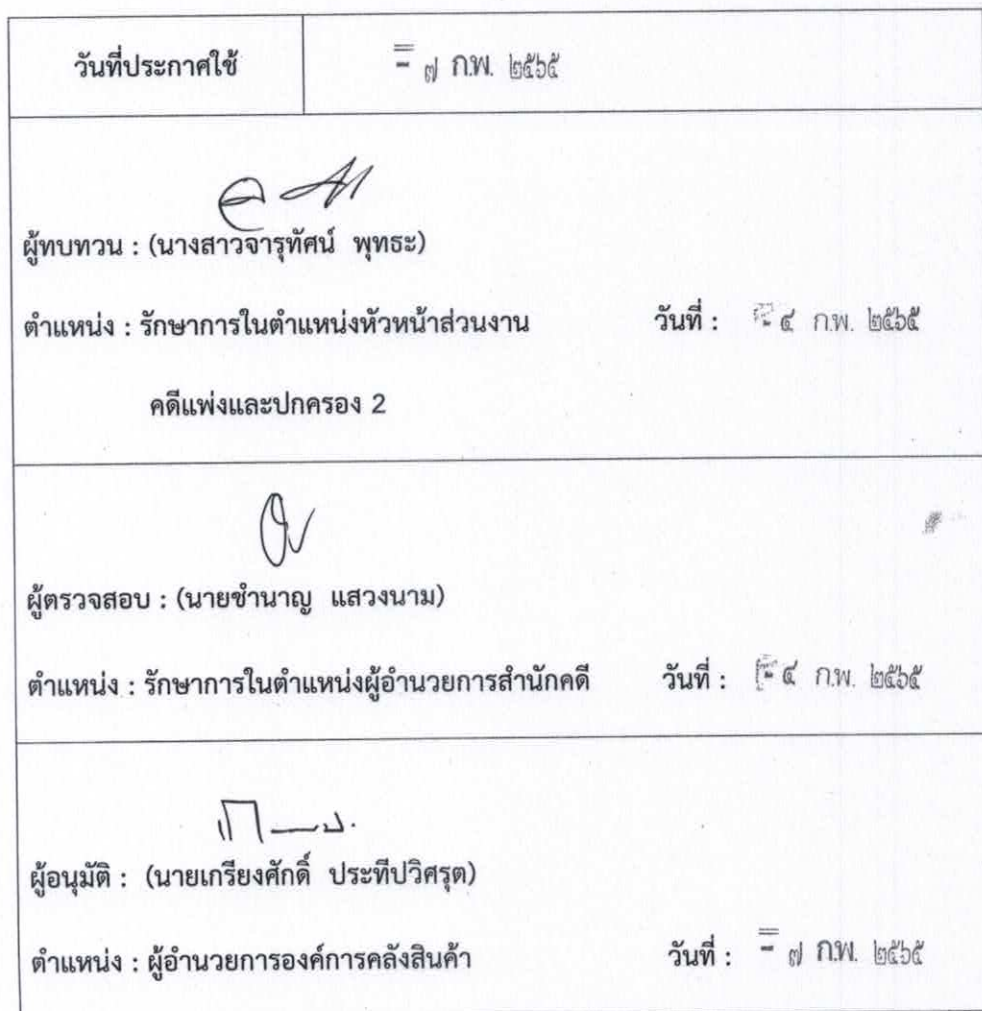 วันที่ประกาศใช้ - ๗ ก.พ. ๒๕๖๕
ผู้ทบทวน : (นางสาวจารุทัศน์ พุทธะ)
ตำแหน่ง : รักษาการในตำแหน่งหัวหน้าส่วนงาน วันที่ : - ๔ ก.พ. ๒๕๖๕
คดีแพ่งและปกครอง 2
ผู้ตรวจสอบ : (นายชำนาญ แสวงนาม)
ตำแหน่ง : รักษาการในตำแหน่งผู้อำนวยการสำนักคดี วันที่ : - ๔ ก.พ. ๒๕๖๕
ผู้อนุมัติ : (นายเกรียงศักดิ์ ประทีปวิศรุต)
ตำแหน่ง : ผู้อำนวยการองค์การคลังสินค้า วันที่ : - ๗ ก.พ. ๒๕๖๕